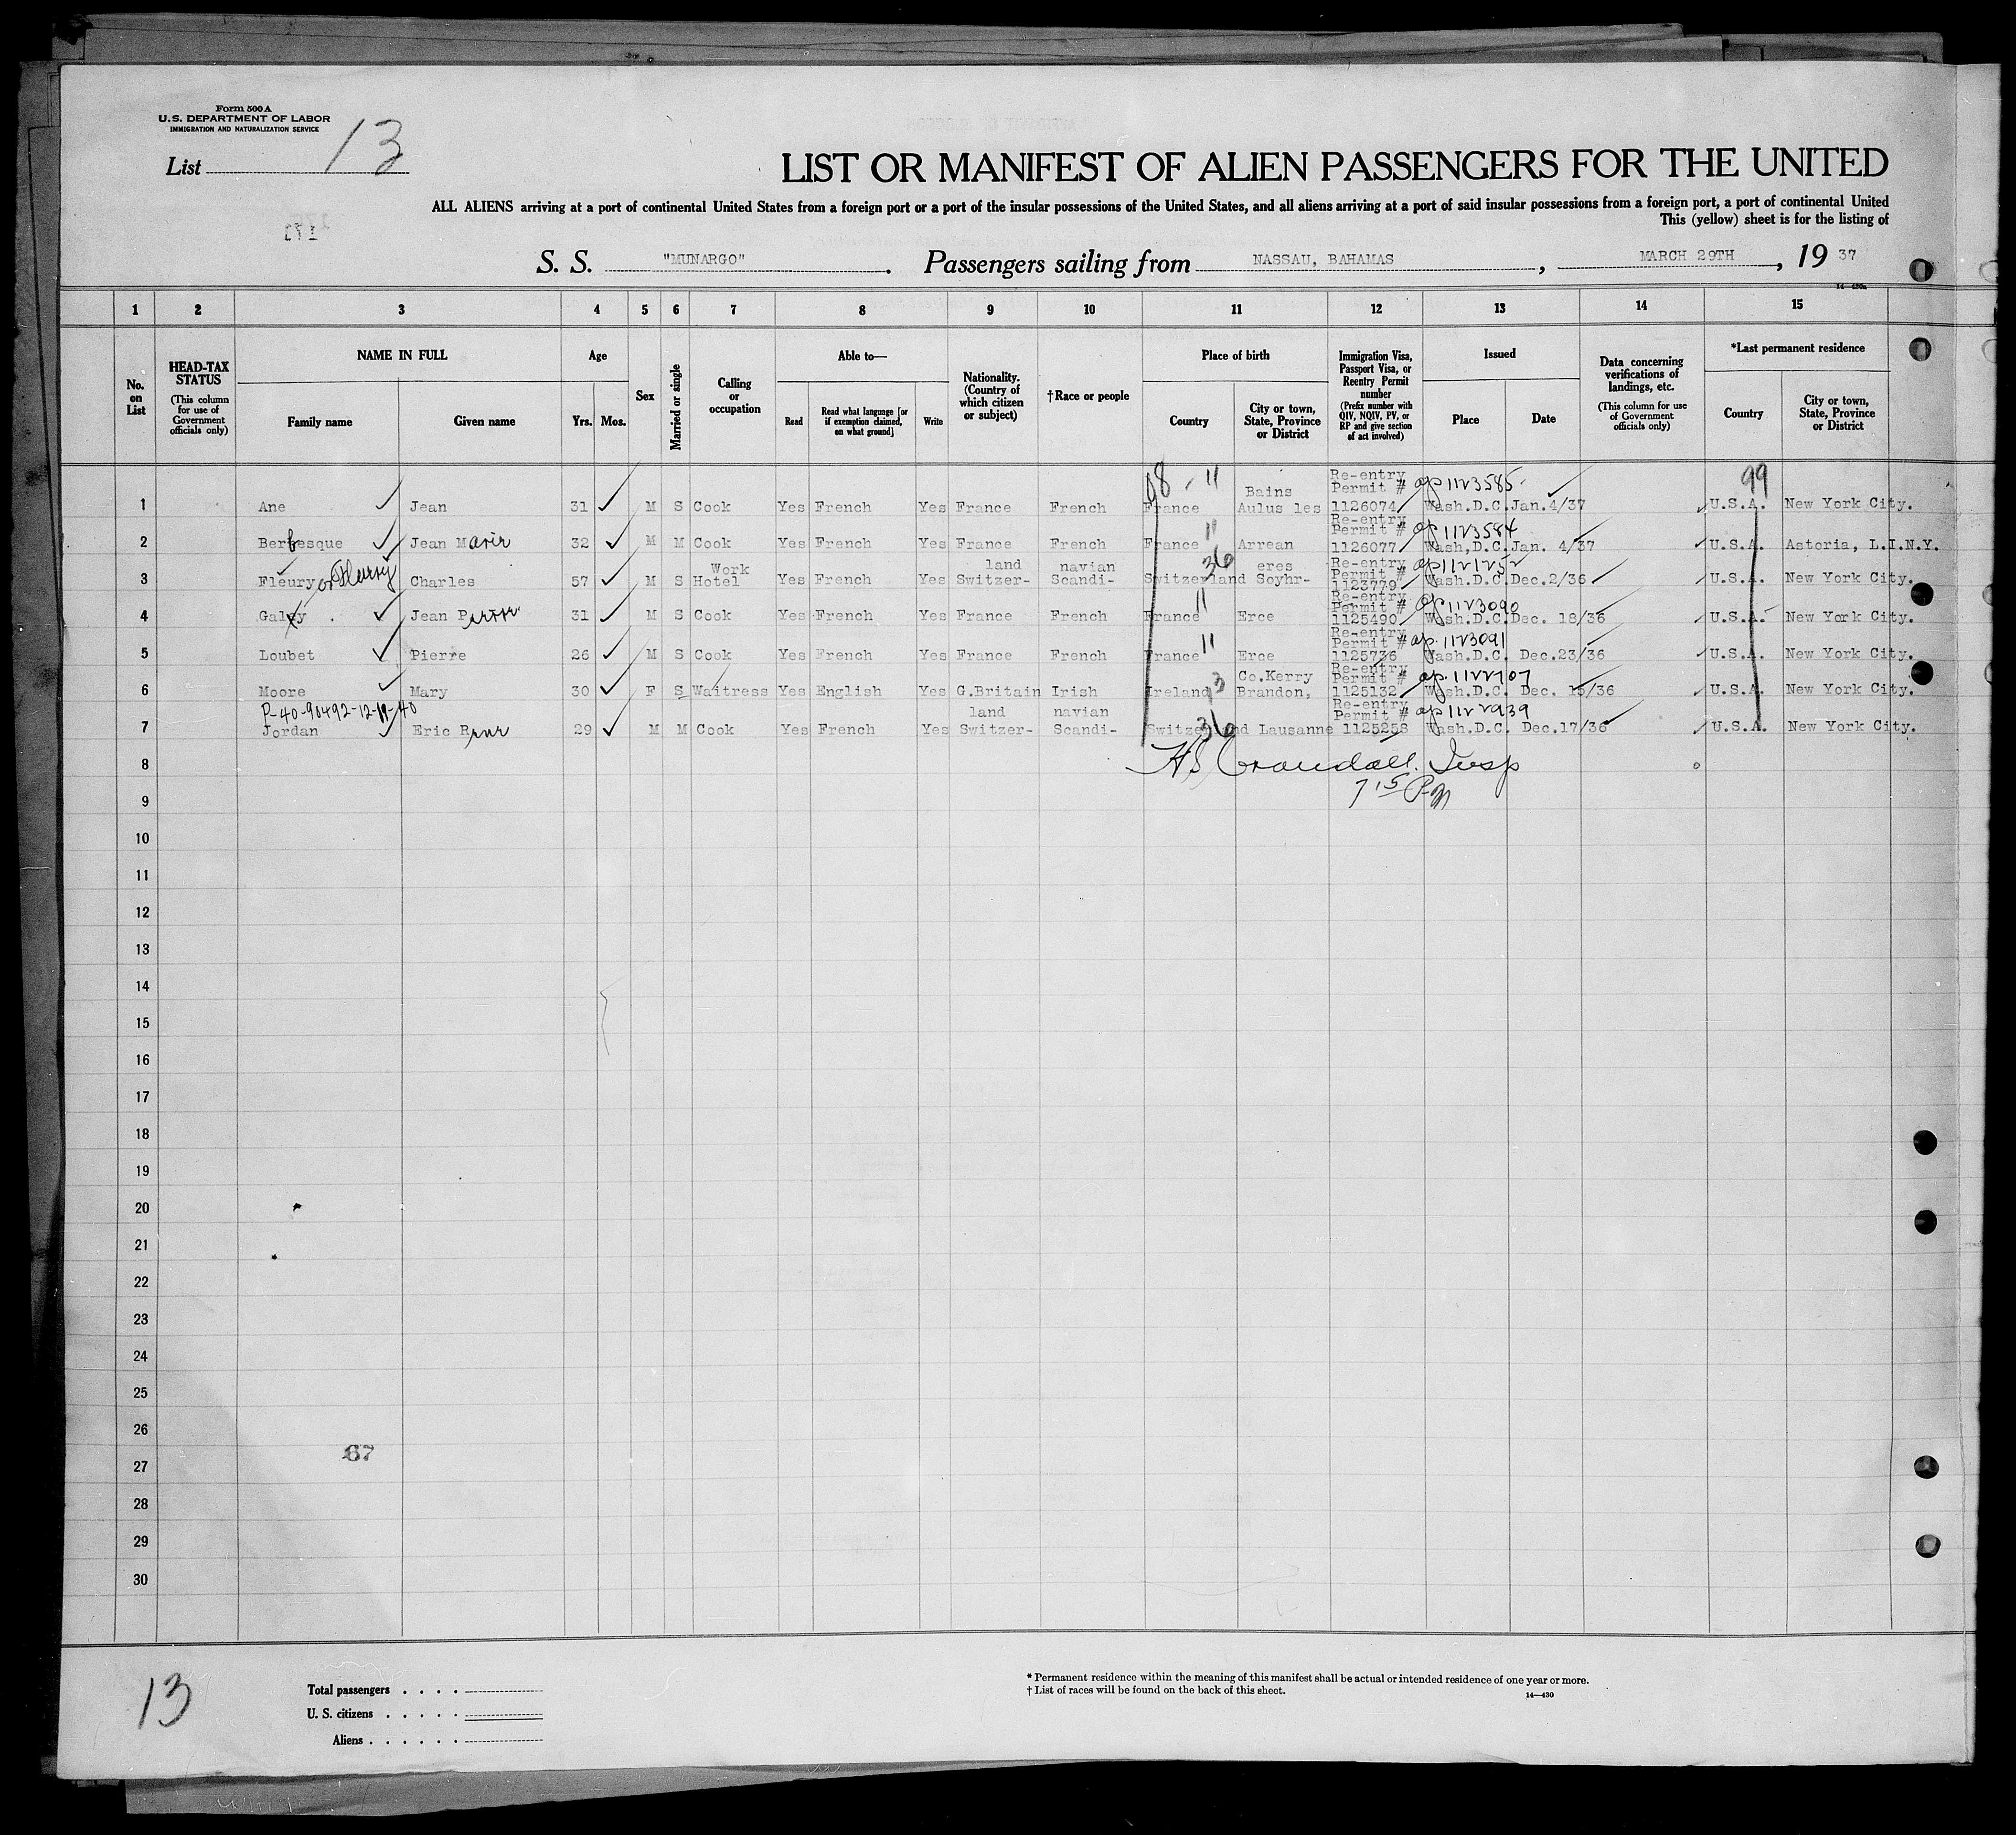 Form 500 A
U.S. DEPARTMENT OF LABOR
IMMIGRATION AND NATURALIZATION SERVICE
List 13
LIST OR MANIFEST OF ALIEN PASSENGERS FOR THE UNITED
ALL ALIENS arriving at a port of continental United States from a foreign port or a port of the insular possessions of the United States, and all aliens arriving at a port of said insular possessions from a foreign port, a port of continental United
This (yellow) sheet is for the listing of
S. S. "MUNARGO". Passengers sailing from NASSAU, BAHAMAS, MARCH 29TH, 19 37
1 2 3 4 5 6 7 8 9 10 11 12 13 14 15
No. on List
HEAD-TAX STATUS (This column for use of Government officials only)
NAME IN FULL Family name Given name
Age Yrs. Mos.
Sex
Married or single
Calling or occupation
Able to— Read Read what language [or if exemption claimed, on what ground] Write
Nationality. (Country of which citizen or subject)
†Race or people
Place of birth Country City or town, State, Province or District
Immigration Visa, Passport Visa, or Reentry Permit number (Prefix number with QIV, NQIV, PV, or RP and give section of act involved)
Issued Place Date
Data concerning verifications of landings, etc. (This column for use of Government officials only)
*Last permanent residence Country City or town, State, Province or District
08 - 11 99
1 Ane Jean 31 M S Cook Yes French Yes France French France Bains Aulus les Re-entry Permit # 1126074 ap 1123585 Wash.D.C. Jan.4/37 U.S.A. New York City.
2 Berbesque Jean Marie 32 M M Cook Yes French Yes France French France 11 Arrean Re-entry Permit # 1126077 ap 1123584 Wash,D.C. Jan. 4/37 U.S.A. Astoria, L.I.N.Y.
3 Fleury or Flury Charles 57 M S Hotel Work Yes French Yes Switzer-land Scandi-navian Switzerland 36 Soyhr-eres Re-entry Permit # 1123779 ap 1121252 Wash.D.C. Dec.2/36 U.S.A. New York City.
4 Galey Jean Pierre 31 M S Cook Yes French Yes France French France 11 Erce Re-entry Permit # 1125490 ap 1123090 Wash.D.C. Dec. 18/36 U.S.A. New York City.
5 Loubet Pierre 26 M S Cook Yes French Yes France French France 11 Erce Re-entry Permit # 1125736 ap. 1123091 Wash.D.C. Dec.23/36 U.S.A. New York City.
6 Moore Mary 30 F S Waitress Yes English Yes G.Britain Irish Ireland Co.Kerry Brandon, Re-entry Permit # 1125132 ap. 1122707 Wash.D.C. Dec. 15/36 U.S.A. New York City.
P-40-90492-12-11-40
7 Jordan Eric Rene 29 M M Cook Yes French Yes Switzer-land Scandi-navian Switzerland 36 Lausanne Re-entry Permit # 1125258 ap 1122939 Wash.D.C. Dec.17/36 U.S.A. New York City.
8 H S Crandall. Insp
9 7 15 P.M
10
11
12
13
14
15
16
17
18
19
20
21
22
23
24
25
26
67
27
28
29
30
13
Total passengers
U. S. citizens
Aliens
* Permanent residence within the meaning of this manifest shall be actual or intended residence of one year or more.
† List of races will be found on the back of this sheet.
14—430